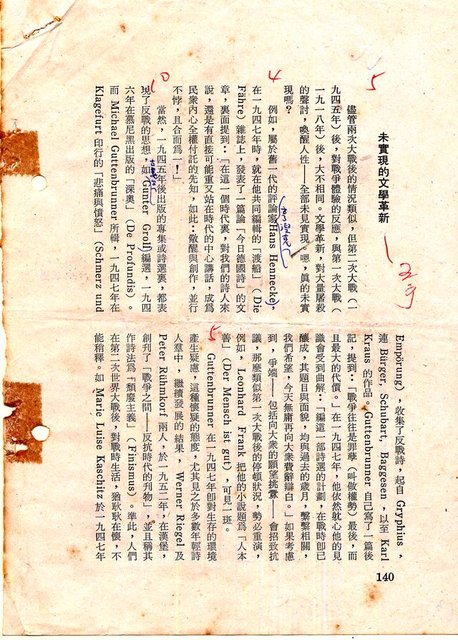 未實現的文學革新
儘管兩次大戰後的情況類似,但第二次大戰(一
九四五年)後,對戰爭體驗的反應,與第一次大戰(
一九一八年)後,大不相同。文學革新,對大量屠殺
的聲討,喚醒人性——全部未見實現。嗯,眞的未實
現嗎?
例如,屬於舊一代的評論家Hans Hennecke,
在一九四七年時,就在他共同編輯的「渡船」(Die
Fähre)雜誌上,發表了一篇論「今日德國詩」的文
章,裏面提到:「在這一個時代裏,對我們的詩人來
說,還是有直接可能重又站在時代的中心講話,成為
民衆內心全權付託的先知,如此:儆醒與創作,並行
不悖,且合而為一!」
當然,一九四五年後出版的專集或詩選裏,都表
現了反戰的思想,如Gunter Groll編選,一九四
六年在慕尼黑出版的「深奧」(De Profundis)。
而Michael Guttenbrunner所輯,一九四七年在
Klagefurt印行的「悲痛與憤怒」(Schmerz und
Empörung),收集了反戰詩,起自Gryphius,
連Bürger, Schubart, Baggesen,以至Karl
Kraus的作品。Guttenbrunner自己寫了一篇後
記,提到:「戰爭往往是罪孽(叫做權勢)最後,而
且最大的代價。」在一九四七年,他依然耿心他的見
識會受到曲解:「編選一部詩選的計劃,在戰時卽已
釀成,其題目與面貌,均與過去的歲月,繫繫相關,
我們希望,今天無庸再向大衆費辭辯白。」如果考慮
到,爭端——包括向大衆的願望挑釁——會招致抗
議,那麼類似第一次大戰後的停頓狀況,勢必重演,
例如,Leonhard Frank把他的小說題為「人本
善」(Der Mensch ist gut),可見一斑。
Guttenbrunner在一九四七年卽對生存的環境
產生疑慮,這種懷疑的態度,尤其見之於多數年輕詩
人羣中,繼續發展的結果,Werner Riegel及
Peter Rühmkorf兩人,於一九五二年,在漢堡,
創刊了「戰爭之間——反抗時代的刊物」,並且稱其
作詩法為「頹廢主義」(Finismus)。準此,人們
在第二次世界大戰後,對戰時生活,猶耿耿在懷,不
能稍釋。如Marie Luise Kaschitz於一九四七年
140
5
4
10
5